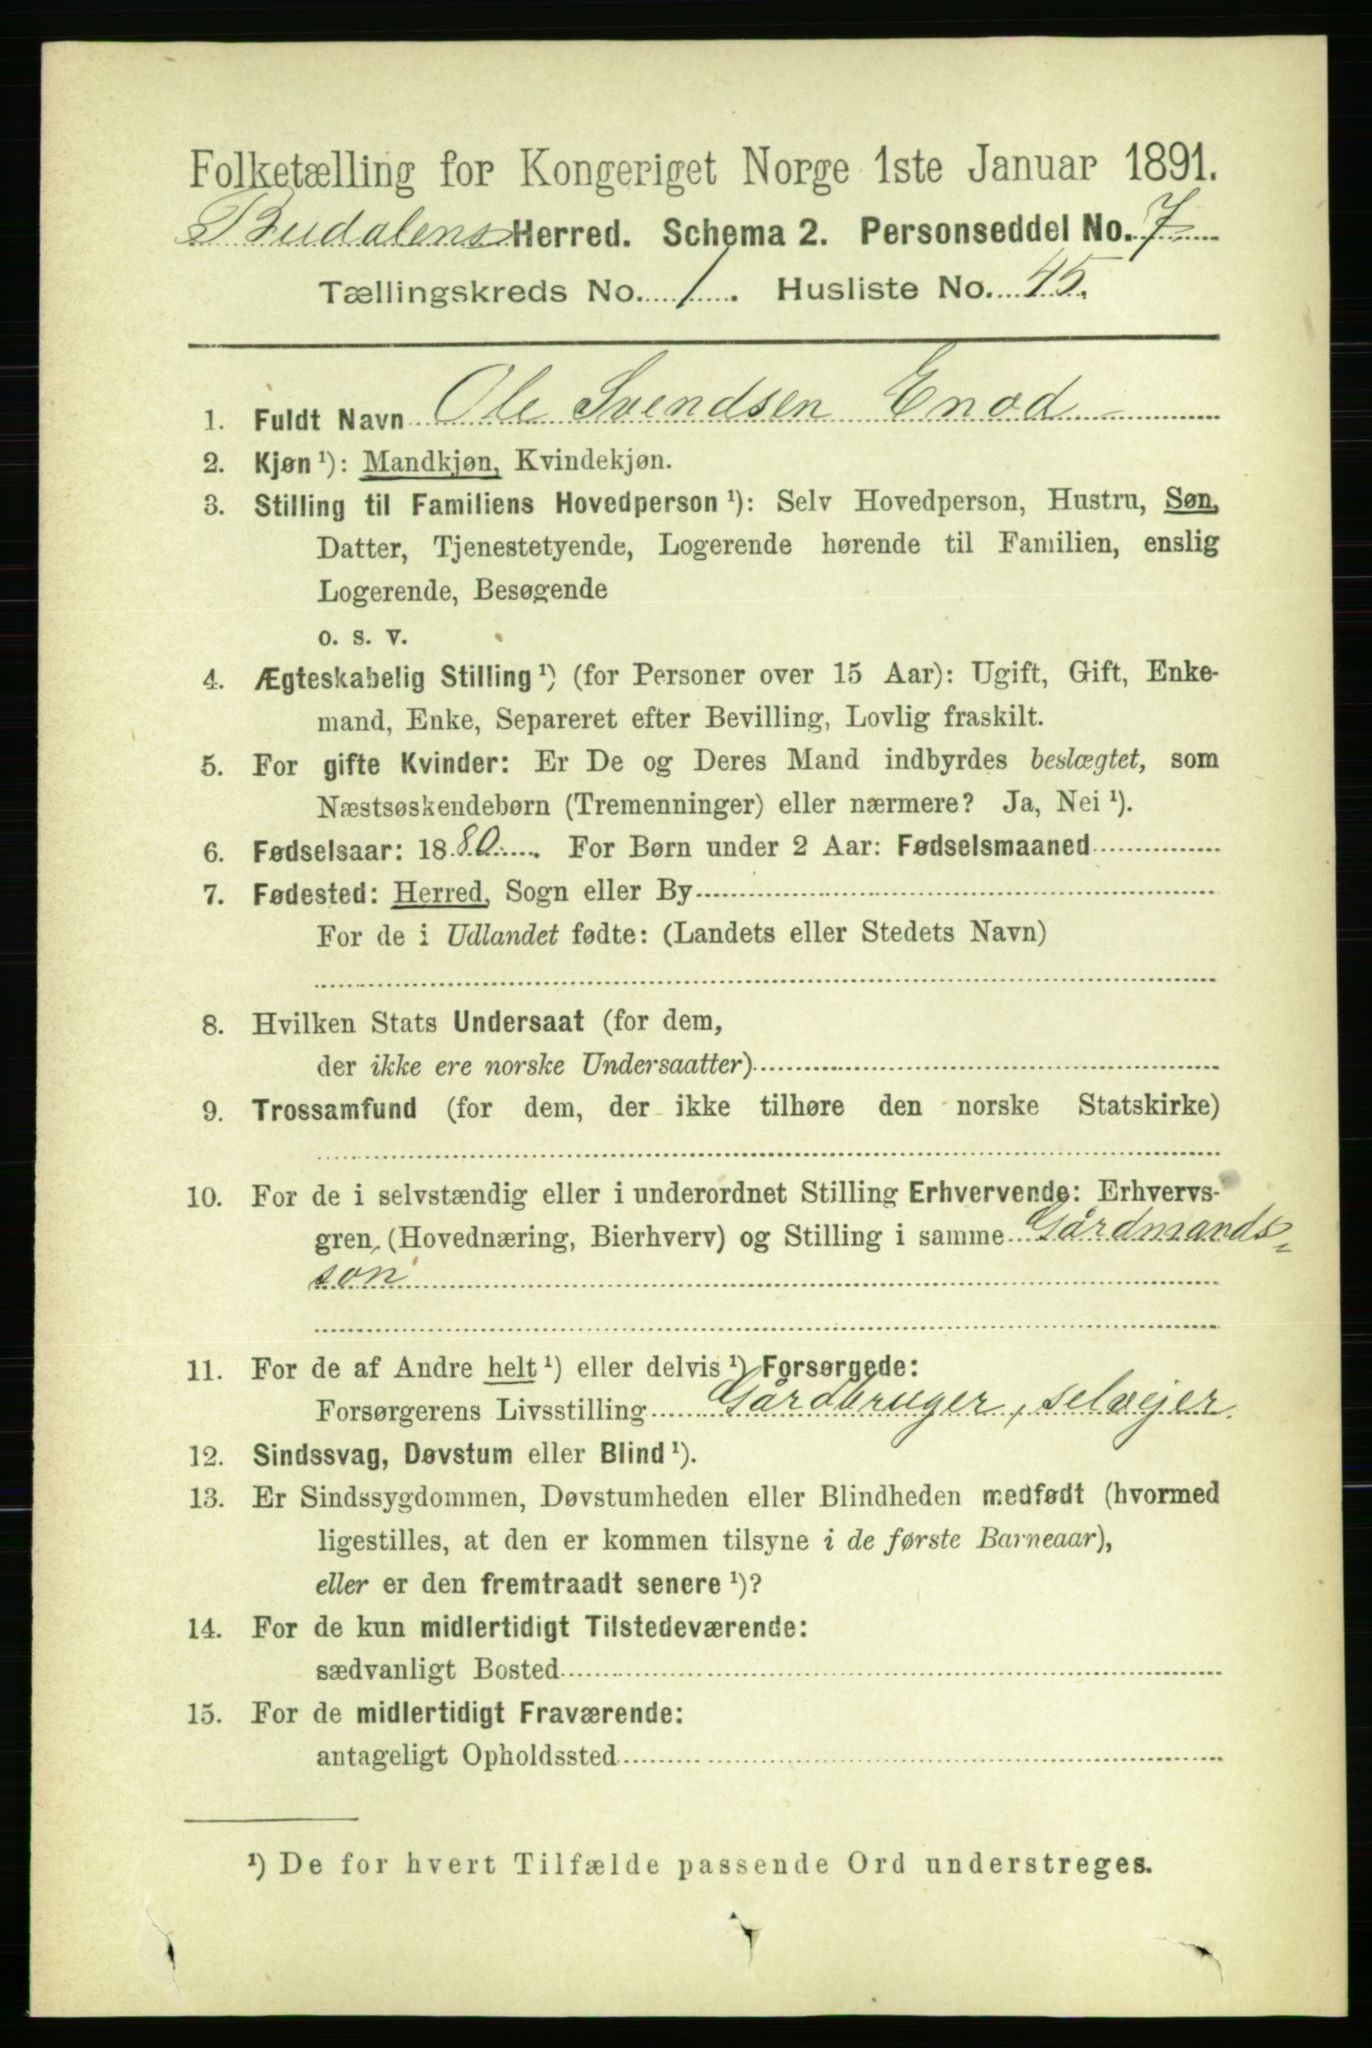 Folketælling for Kongeriget Norge 1ste Januar 1891.
Budalens Herred. Schema 2. Personseddel No. 7
Tællingskreds No. 1. Husliste No. 45.
1. Fuldt Navn Ole Svendsen Enod
2. Kjøn ¹): Mandkjøn, Kvindekjøn.
3. Stilling til Familiens Hovedperson ¹): Selv Hovedperson, Hustru, Søn,
Datter, Tjenestetyende, Logerende hørende til Familien, enslig
Logerende, Besøgende
o. s. v.
4. Ægteskabelig Stilling ¹) (for Personer over 15 Aar): Ugift, Gift, Enke-
mand, Enke, Separeret efter Bevilling, Lovlig fraskilt.
5. For gifte Kvinder: Er De og Deres Mand indbyrdes beslægtet, som
Næstsøskendebørn (Tremenninger) eller nærmere? Ja, Nei ¹).
6. Fødselsaar: 1880. For Børn under 2 Aar: Fødselsmaaned
7. Fødested: Herred, Sogn eller By
For de i Udlandet fødte: (Landets eller Stedets Navn)
8. Hvilken Stats Undersaat (for dem,
der ikke ere norske Undersaatter)
9. Trossamfund (for dem, der ikke tilhøre den norske Statskirke)
10. For de i selvstændig eller i underordnet Stilling Erhvervende: Erhvervs-
gren, (Hovednæring, Bierhverv) og Stilling i samme Gårdmands-
søn
11. For de af Andre helt ¹) eller delvis ¹) Forsørgede:
Forsørgerens Livsstilling Gårdbruger, selvejer.
12. Sindssvag, Døvstum eller Blind ¹).
13. Er Sindssygdommen, Døvstumheden eller Blindheden medfødt (hvormed
ligestilles, at den er kommen tilsyne i de første Barneaar),
eller er den fremtraadt senere ¹)?
14. For de kun midlertidigt Tilstedeværende:
sædvanligt Bosted
15. For de midlertidigt Fraværende:
antageligt Opholdssted
¹) De for hvert Tilfælde passende Ord understreges.